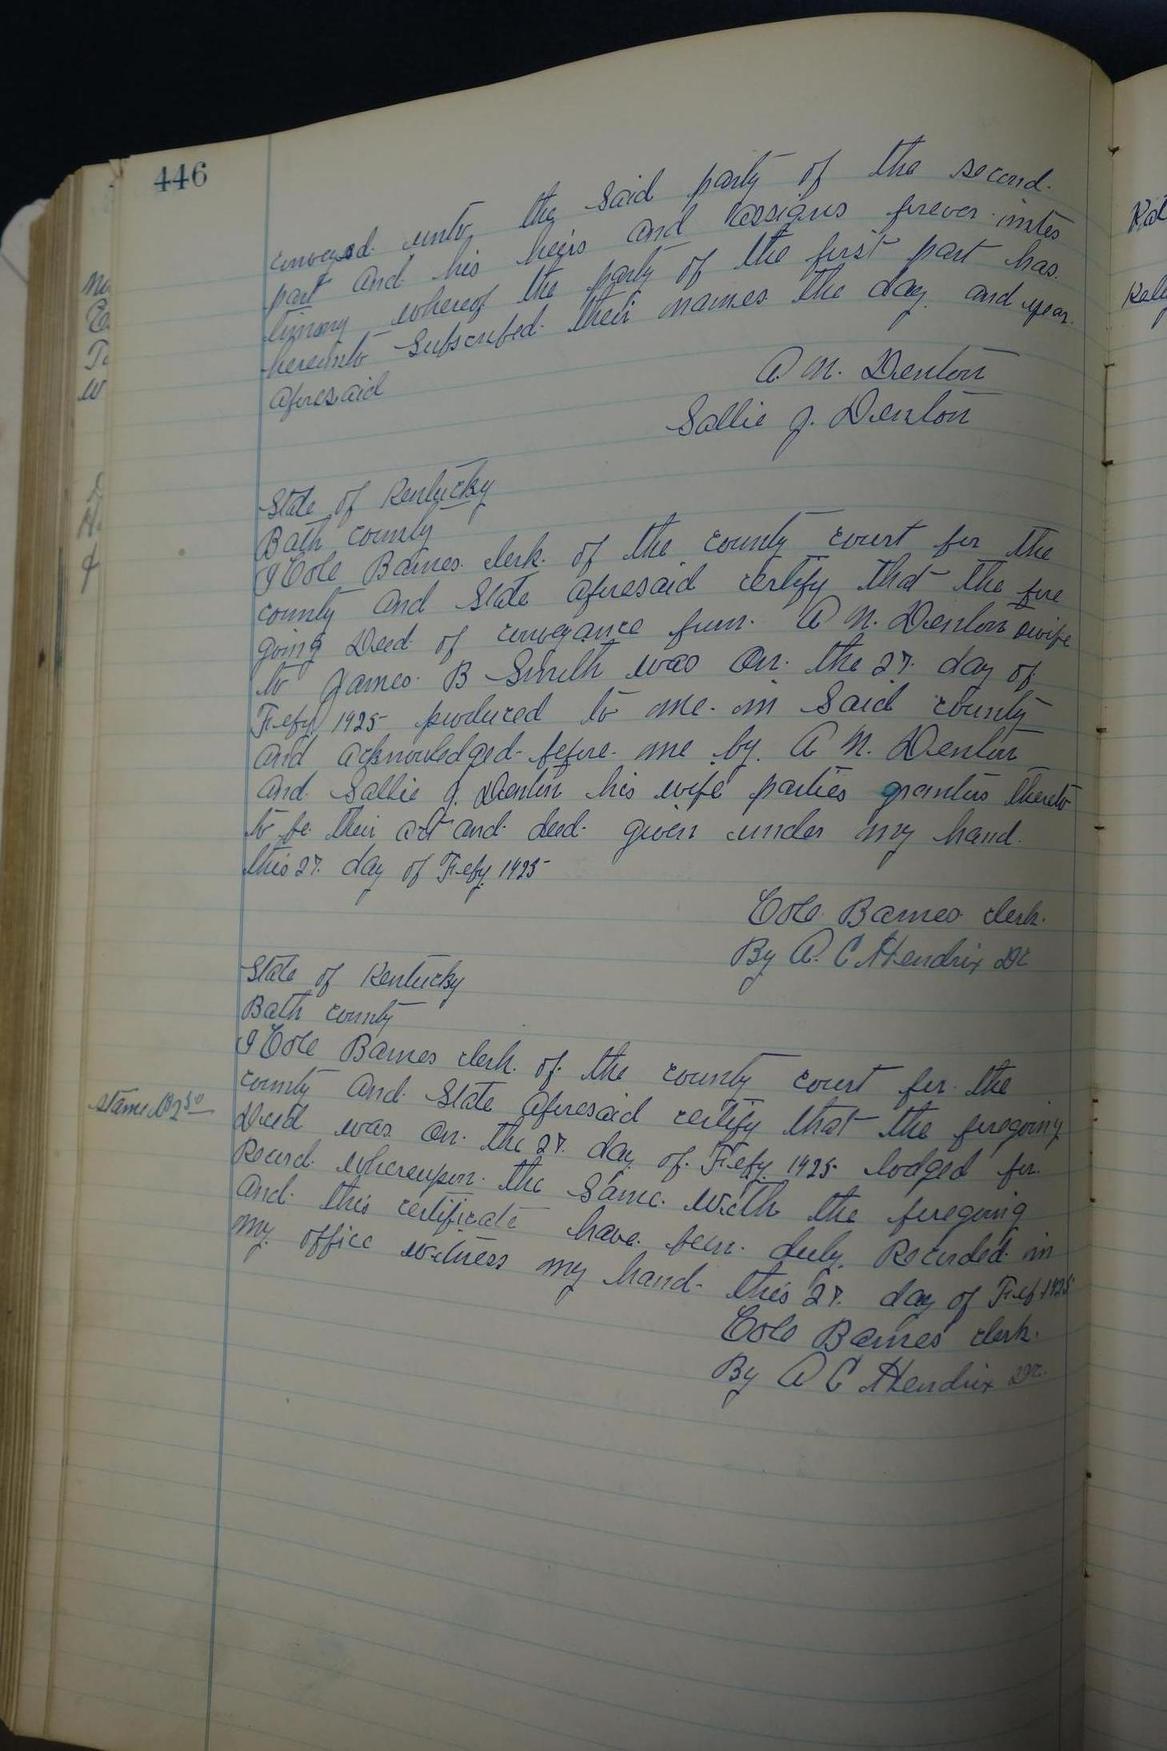 446
conveyed unto the said party of the second
part and his heirs and assigns forever intes
timony whereof the party of the first part has
hereinto Subscribed their names the day and year
aforesaid
A. N. Denton
Sallie J. Denton
State of Kentucky
Bath county
I Cole Barnes clerk of the county court for the
county and State aforesaid certify that the fore
going Deed of conveyance from A N. Denton & wife
to James B Smith was on the 27 day of
Feby 1925 produced to me in Said county
and acknowledged before me by A N. Denton
and Sallie J. Denton his wife parties grantors thereto
to be their act and deed given under my hand
this 27 day of Feby 1925
Cole Barnes clerk.
By A. C Hendrix DC
State of Kentucky
Bath county
I Cole Barnes clerk of the county court for the
county and State aforesaid certify that the foregoing
Stamp 2 50
Deed was on the 27 day of Feby 1925 lodged for
Record whereupon the Same with the foregoing
and this certificate have been duly Recorded in
my office witness my hand this 27 day of Feb 1925
Cole Barnes clerk.
By A C Hendrix DC.